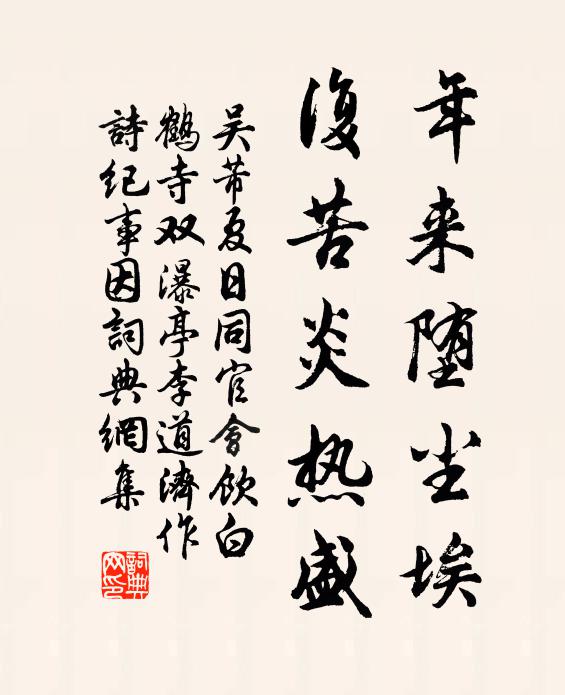 年来堕尘埃
復苦炎热盛
吴芾夏日同官會飲白
鶴寺双瀑亭李道濟作
詩紀事因詞典網集
詞典
网印